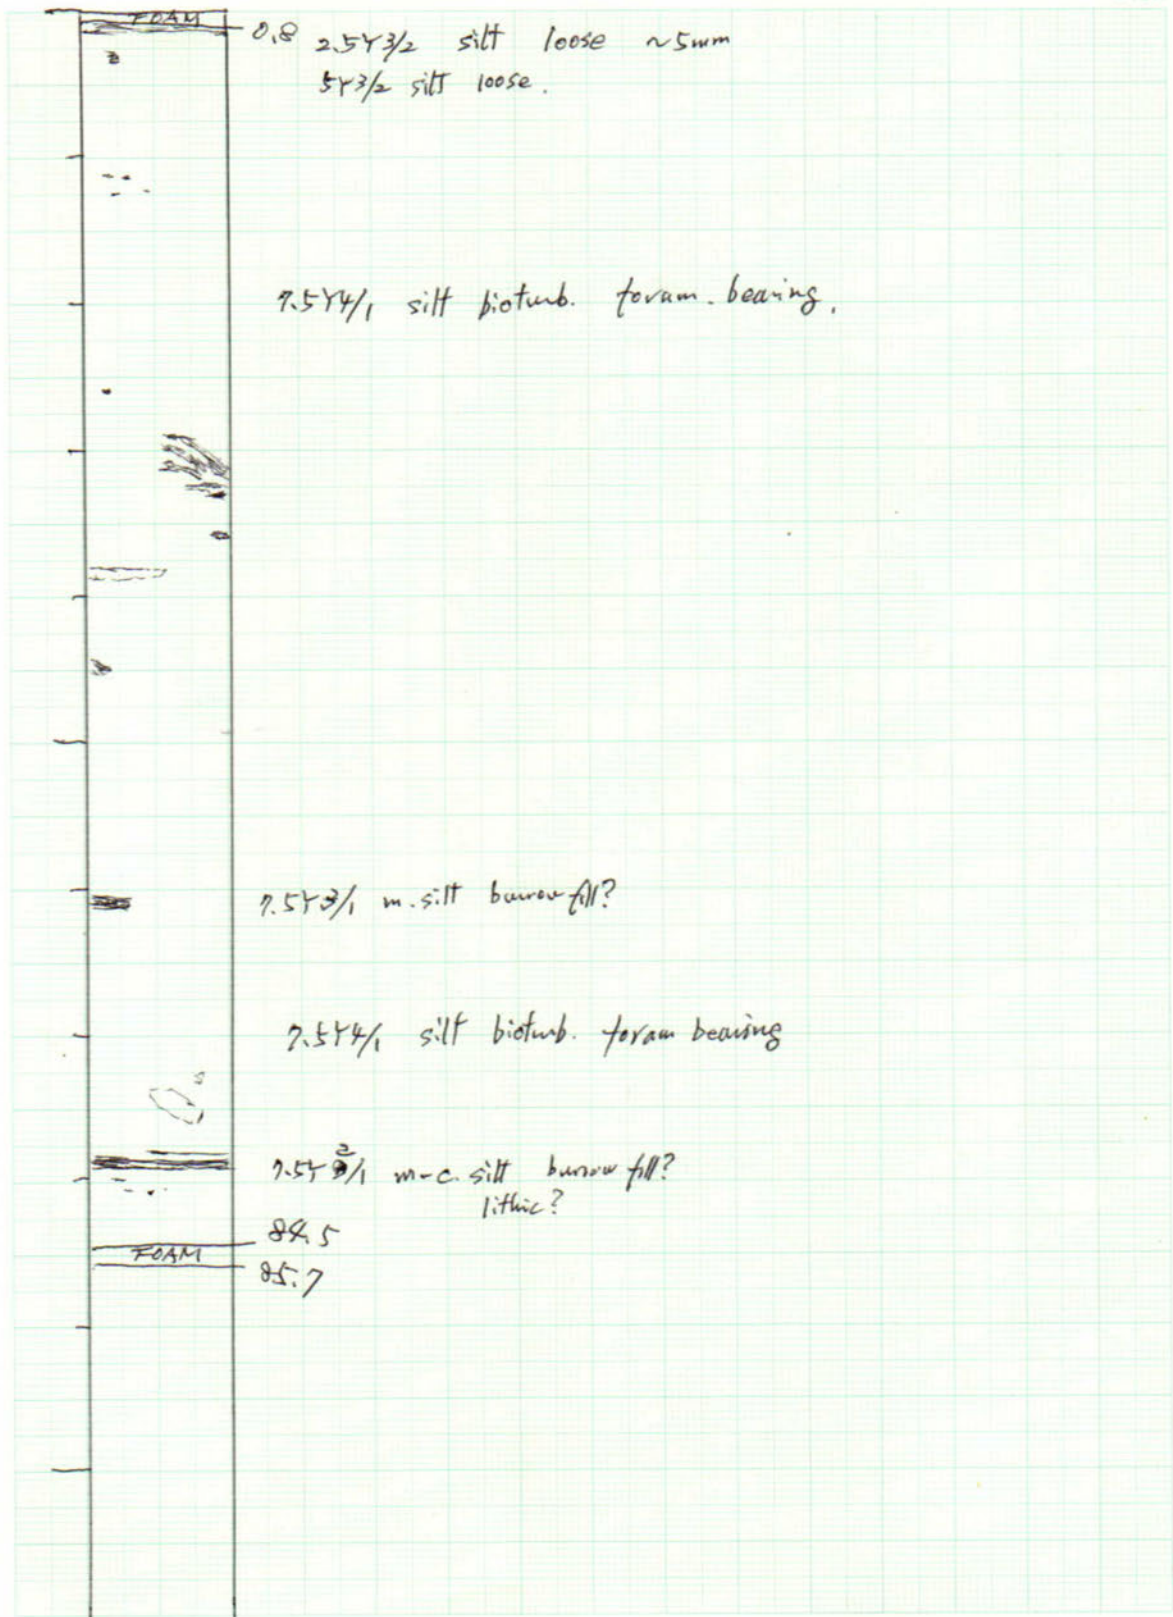 FOAM
0.8 2.5Y3/2 silt loose ~5mm
5Y3/2 silt loose.
7.5Y4/1 silt bioturb. foram. bearing.
7.5Y3/1 m. silt burrow fill?
7.5Y4/1 silt bioturb. foram bearing
7.5Y 2/1 m-c. silt burrow fill?
lithic?
84.5
FOAM
85.7